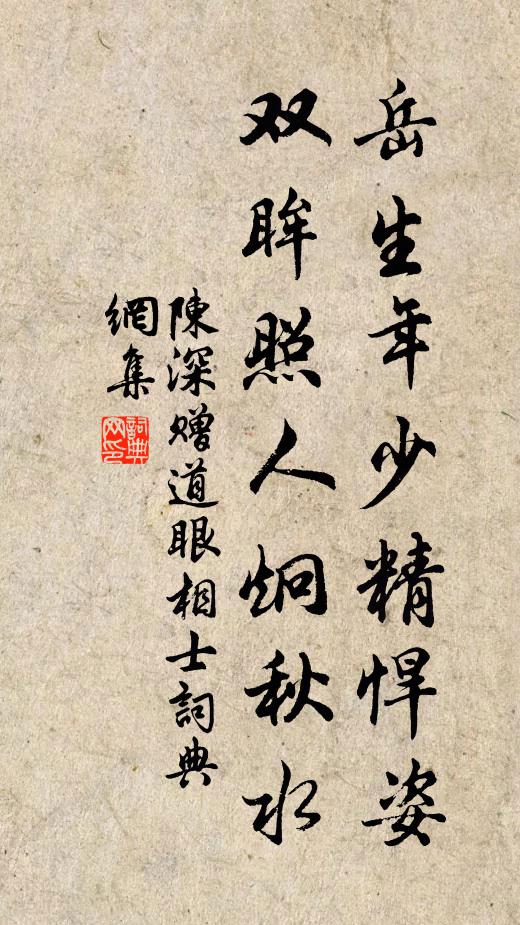 岳生年少精悍姿
双眸照人炯秋水
陳深赠道眼相士詞典
網集
詞典
网印